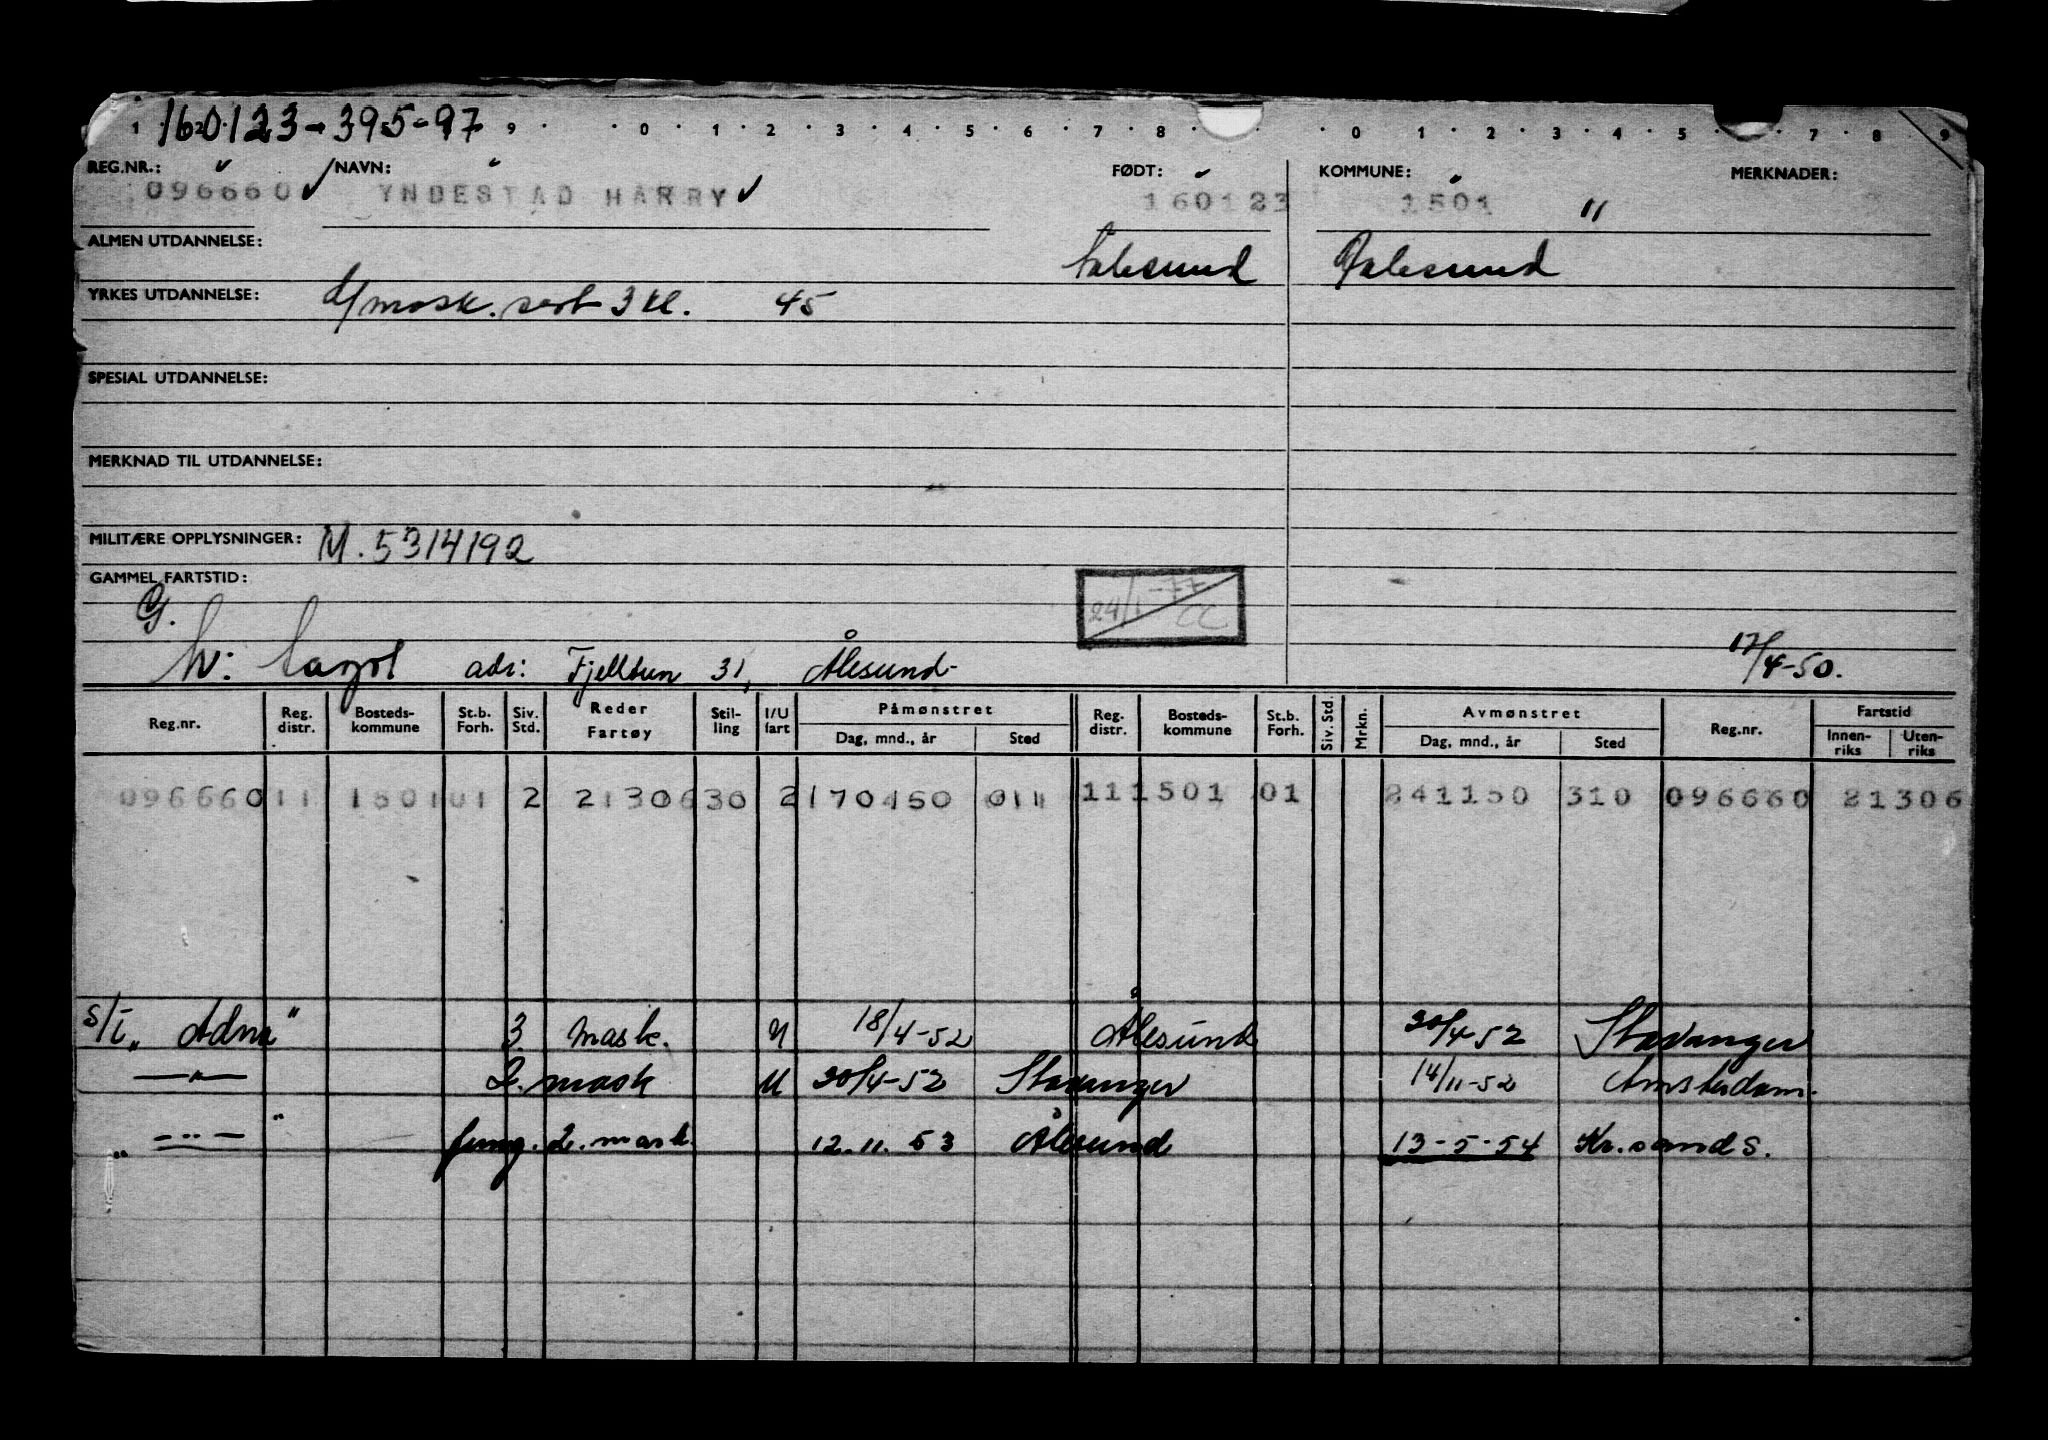 160123-395-97
REG.NR.: NAVN: FØDT: KOMMUNE: MERKNADER:
096660 YNDESTAD HARRY 160123 1501 "
ALMEN UTDANNELSE: Aalesund Aalesund
YRKES UTDANNELSE: D/mask. sert 3 kl. 45
SPESIAL UTDANNELSE:
MERKNAD TIL UTDANNELSE:
MILITÆRE OPPLYSNINGER: M. 5314192
GAMMEL FARTSTID:
G.
24/1-77 CC
H: adr: Fjelltun 31, Ålesund 17/4-50.
Reg.nr. Reg. distr. Bosteds-kommune St.b. Forh. Siv. Std. Reder Fartøy Stil-ling I/U fart Påmønstret Dag, mnd., år Sted Reg. distr. Bosteds-kommune St.b. Forh. Siv. Std. Mrkn. Avmønstret Dag, mnd., år Sted Reg.nr. Fartstid Innen-riks Uten-riks
096660 11 1501 01 2 21306 30 2 170450 011 11 1501 01 241150 310 096660 21306
S/T " Adna " 3 mask. U 18/4-52 Ålesund 20/4-52 Stavanger
—"— 2. mask U 20/4-52 Stavanger 14/11-52 Amsterdam.
" —..— " fung. 2. mask. 12.11.53 Ålesund 13-5-54 Kr.sand S.